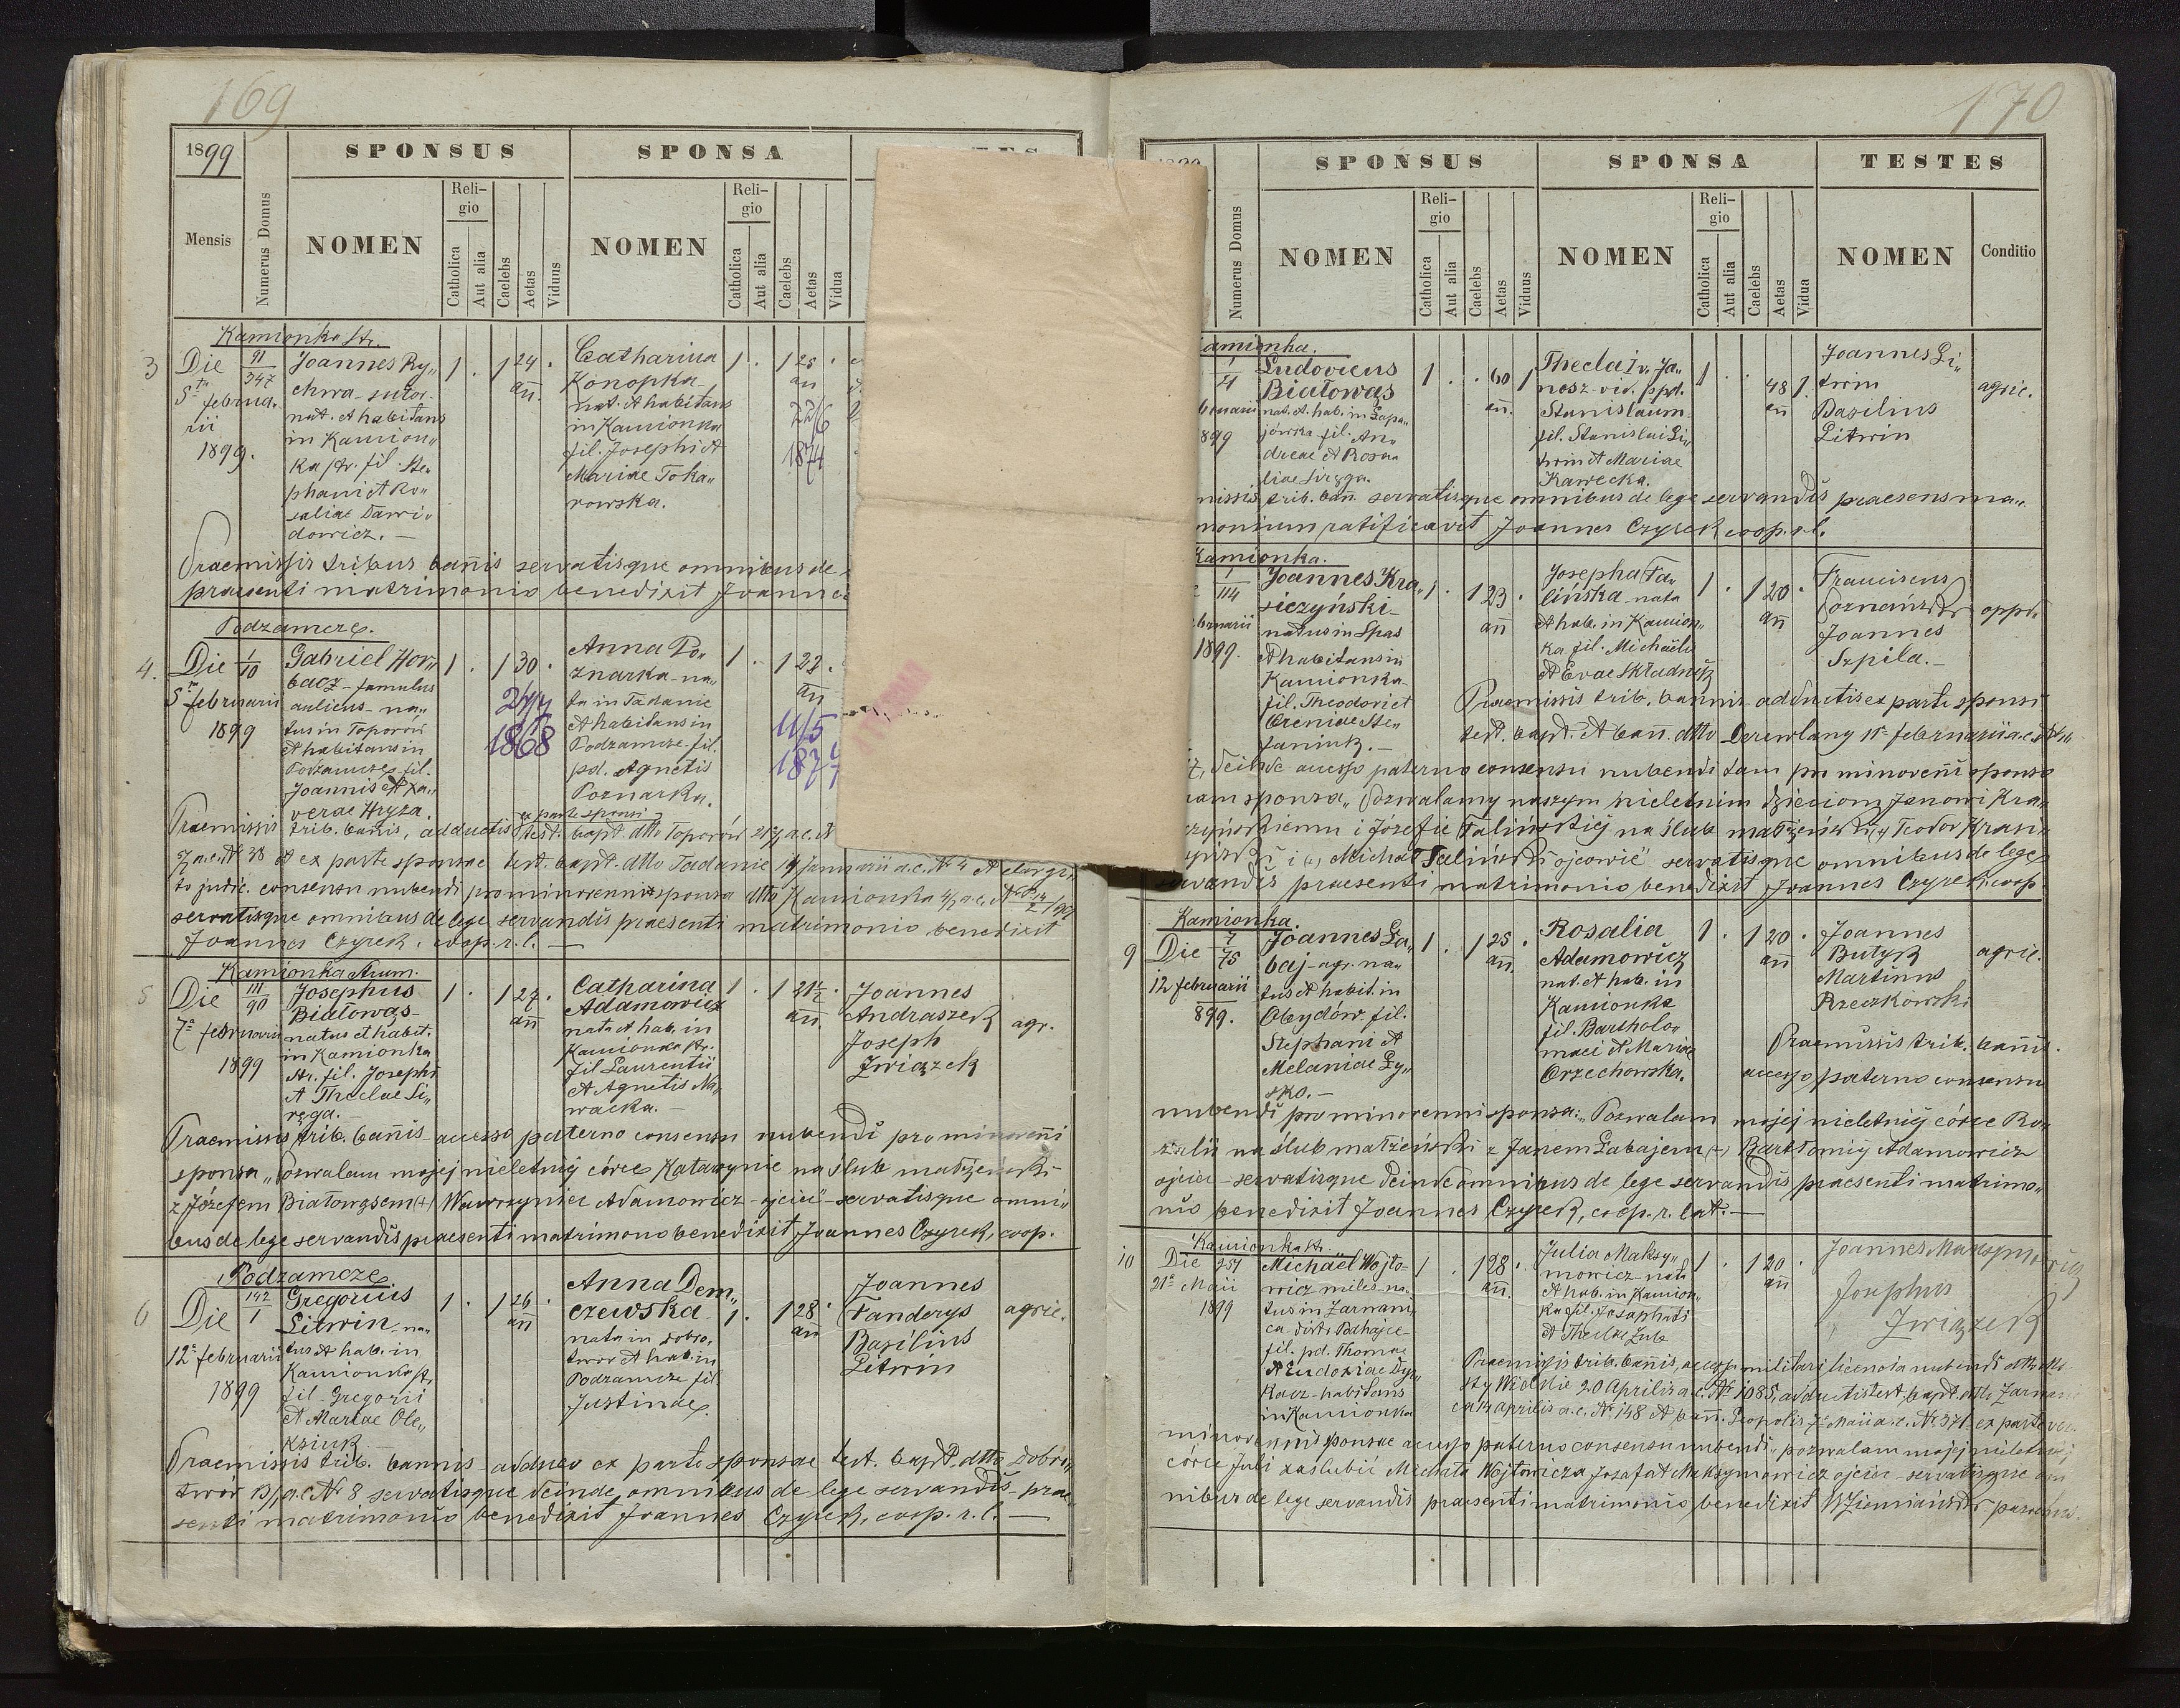 169
1899
SPONSUS
SPONSA
Mensis
Numerus Domus
NOMEN
Religio
Catholica
Aut alia
Caelebs
Aetas
Viduus
NOMEN
Religio
Catholica
Aut alia
Caelebs
Aetas
Vidua
Kamionka str.
3
Die
5ta februa-
rii
1899.
91
347
Joannes Ry„
chwa - sutor -
nat. et habitans
in Kamion„
ka str. fil. Ste„
phani et Ro„
saliae Dawi„
dowicz. —
1 . 1 24 .
añ.
Catharina
Konopka -
nat. et habitans
in Kamionka
fil. Josephi et
Mariae Toka„
rowska.
1 . 1 25 .
an
22/6
1874
Praemissis tribus bañis servatisque omnibus de
praesenti matrimonio benedixit Joannes
Podzamcze.
4.
Die
5ta februarii
1899
1
10
Gabriel Hor„
bacz - famulus
aulicus - na„
tus in Toporów
et habitans in
Podzamcze fil.
Joannis et Xa„
verae Hryza.
1 . 1 30 .
24/4
1868
Anna Po„
znarka - na„
ta in Tadanie
et habitans in
Podzamcze fil.
pd. Agnetis
Poznarka.
1 . 1 22 .
añ
11/5
1877
Praemissis trib. bañis, adductis ex parte sponsi test. bapt. dtto Toporów
a.c. № 38 et ex parte sponsae test. bapt. dtto Tadanie 14 Januarii a.c. № 4 et
to judic. consensu nubendi pro minorenni sponsa dtto Kamionka
servatisque omnibus de lege servandis praesenti matrimonio benedixit
Joannes Czyrek, coop. r. l. —
Kamionka Strum.
5
Die
7a februarii
1899
111
90
Josephus
Białowąs -
natus et habit.
in Kamionka
str. fil. Josephi
et Theclae Si„
ręga. —
1 . 1 27 .
añ
Catharina
Adamowicz
nata et hab. in
Kamionka str.
fil Laurentii
et Agnetis Na„
wacka. —
1 . 1 21½ .
añ.
Joannes
Andraszek
Joseph
Związek
agr.
Praemissis trib. bañis - accesso paterno consensu nubendi pro minoreñi
sponsa „Pozwalam mojej nieletniej córce Katarzynie na ślub małżeński
z Józefem Białowąsem (+) Wawrzyniec Adamowicz - ojciec" - servatisque omni„
bus de lege servandis praesenti matrimono benedixit Joannes Czyrek, coop.
Podzamcze
6
Die
12a februarii
1899
142
1
Gregorius
Litwin - na„
tus et hab. in
Kamionka str.
fil. Gregorii
et Mariae Ole„
ksiuk. —
1 . 1 26 .
añ
Anna Dem„
czewska -
nata in Dobro„
twor et hab. in
Podzamcze fil
Justinae.
1 . 1 28 .
añ
Joannes
Fanderys
Basilius
Litwin
agric.
Praemissis trib. bannis - adducto ex parte sponsae test. bapt. dtto Dobro„
twór 13/1 a.c. № 8 servatisque deinde omnibus de lege servandis - prae„
senti matrimonio benedixit Joannes Czyrek, coop. r. l. —
170
SPONSUS
SPONSA
TESTES
Numerus Domus
NOMEN
Religio
Catholica
Aut alia
Caelebs
Aetas
Viduus
NOMEN
Religio
Catholica
Aut alia
Caelebs
Aetas
Vidua
NOMEN
Conditio
amionka.
bruarii
899
Ludovicus
Białowąs
nat. et. hab. in Łapa„
jówka fil. An„
dreae et Rosa„
liae Siręga.
1 . . 60 1
añ.
Thecla Iv. Ja„
nosz - vid. ppd.
Stanislaum
fil. Stanislai Li„
twin et Mariae
Kawecka.
1 . . 48 1.
añ
Joannes Li„
twin
Basilius
Litwin
agric.
missis trib. bañ. servatisque omnibus de lege servandis praesens ma„
monium ratificavit Joannes Czyrek coop. r. l.
Kamionka.
bruarii
1899.
1
114
Joannes Kra„
siczyński -
natus in Spas
et habitans in
Kamionka -
fil. Theodori et
Ireniae Ste„
faniuk. —
1 . 1 23 .
añ
Josepha Ta„
lińska - nata
et hab. in Kamion„
ka fil. Michaelis
et Evae Składnik
1 . 1 20 .
añ
Franciscus
Poznański
Joannes
Szpila. —
oppd.
Praemissis trib. bannis - adductis ex parte sponsi
test. bapt. et bañ. dtto Derewlany 11a februarii a.c.
deinde accesso paterno consensu nubendi tam pro minoreñi sponso
quam sponsa „Pozwalamy naszym nieletnim dzieciom Janowi Kra„
siczyńskiemu i Józefie Talińskiej na ślub małżeński (+) Teodor Krasi„
czyński i (+) Michał Taliński ojcowie" servatisque omnibus de lege
servandis praesenti matrimonio benedixit Joannes Czyrek, coop.
Kamionka.
9
Die
12 februarii
899.
7
75
Joannes Ła„
baj - agr. na„
tus et habit. in
Obydów. fil.
Stephani et
Melaniae Ły„
sko. —
1 . 1 25 .
añ.
Rosalia
Adamowicz
nat. et hab. in
Kamionka
fil. Bartholo„
maei et Mariae
Orzechowska.
1 . 1 20 .
añ
Joannes
Butyk
Martinus
Rzeczkowski
agric.
Praemissis trib. bañis.
accesso paterno consensu
nubendi pro minorenni sponsa: „Pozwalam mojej nieletniej córce Ro„
zalii na ślub małżeński z Janem Łabajem (+) Bartłomiej Adamowicz
ojciec - servatisque deinde omnibus de lege servandis praesenti matrimo„
nio benedixit Joannes Czyrek, coop. r. lat. —
Kamionka str.
10
Die
21a Maii
1899
251
Michael Wojto-
wicz miles na„
tus in Zarnawi„
ca distr. Podhajce -
fil. pd. Thomae
et Eudoxiae
habitans
in Kamionka
1 . 1 28 .
añ.
Julia Maksy„
mowicz - nata
et hab. in Kamion„
ka fil. Josaphati
et Theclae Zub
1 . 1 20 .
añ
Joannes Maksymowicz
Josephus
Związek
Praemissis trib. bañis, accesso militari licentia nubendi
20 Aprilis a.c. № 1085, adductis test. bapt. dtto
14 Aprilis a.c. № 148 et bañ. Leopolis 7 Maii a.c. № 371 ex parte vero
minorennis sponsae accesso paterno consensu nubendi „pozwalam mojej nieletniej
córce Juli zaslubić Michała Wojtowicza Jozafat Maksymowicz ojciec - servatisque om
nibus de lege servandis praesenti matrimonio benedixit